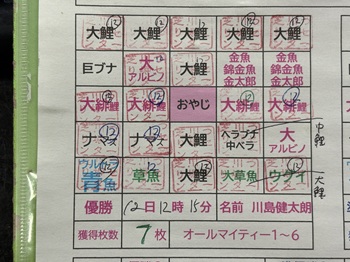 大鯉 大鯉 大鯉 大鯉 大鯉
巨ブナ 大アルビノ 大鯉 金魚 錦金魚 金太郎 金魚 錦金魚 金太郎
大緋鯉 大緋鯉 おやじ 大緋鯉 大緋鯉
ナマズ ナマズ 大鯉 ヘラブナ 中ベラ 大アルビノ 中鯉
ウルトラ青魚 草魚 大鯉 大草魚 ウグイ 大鯉
優勝 12日12時15分 名前 川島健太朗
獲得枚数 7枚 オールマイティー1~6